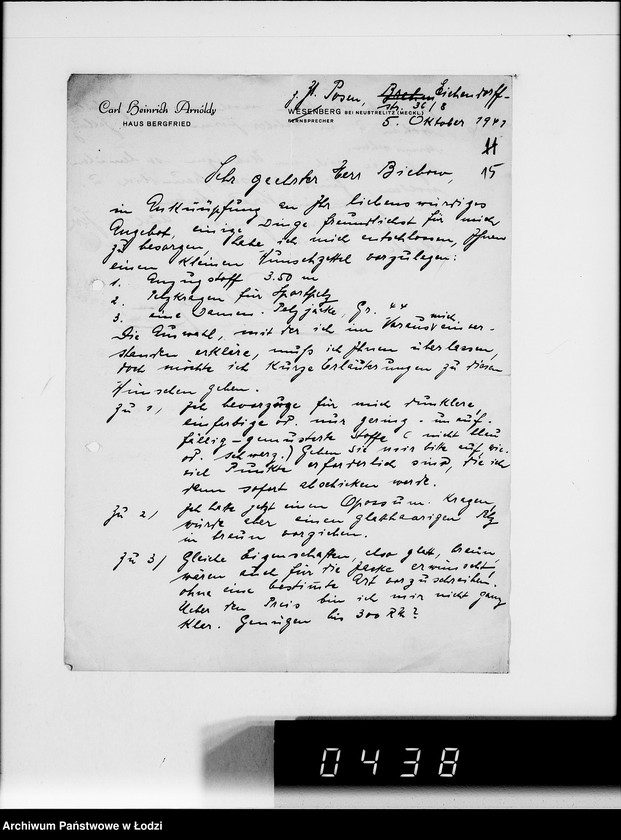 Carl Heinrich Arnoldy
HAUS BERGFRIED
z. Zt. Posen, Eichendorff-
str. 36/8
WESENBERG BEI NEUSTRELITZ (MECKL)
FERNSPRECHER
5. Oktober 1941
15
Sehr geehrter Herr Biebow,
in Anknüpfung an Ihr liebenswürdiges
Angebot, einige Dinge freundlichst für mich
zu besorgen, habe ich mich entschlossen, Ihnen
einen kleinen Wunschzettel vorzulegen:
1. Anzugstoff 3.50 m
2. Pelzkragen für Sportpelz
3. eine Damen-Pelzjacke, Gr. 44
Die Auswahl, mit der ich im Voraus mich einver-
standen erkläre, muß ich Ihnen überlassen,
doch möchte ich kurze Erläuterungen zu diesen
Wünschen geben.
zu 1) Ich bevorzuge für mich dunklere,
einfarbige od. nur gering - unauf-
fällig - gemusterte Stoffe (nicht blau
od. schwarz.) Geben Sie mir bitte auf, wie-
viel Punkte erforderlich sind, die ich
dann sofort abschicken werde.
zu 2) Ich habe jetzt einen Opossum-Kragen,
würde aber einen glatthaarigen Pelz
in braun vorziehen.
zu 3) Gleiche Eigenschaften, also glatt, braun
wären auch für die Jacke erwünscht,
ohne eine bestimmte Art vorzuschreiben.
Ueber den Preis bin ich mir nicht ganz
klar. Genügen bis 300 RM?
0438
Archiwum Państwowe w Łodzi